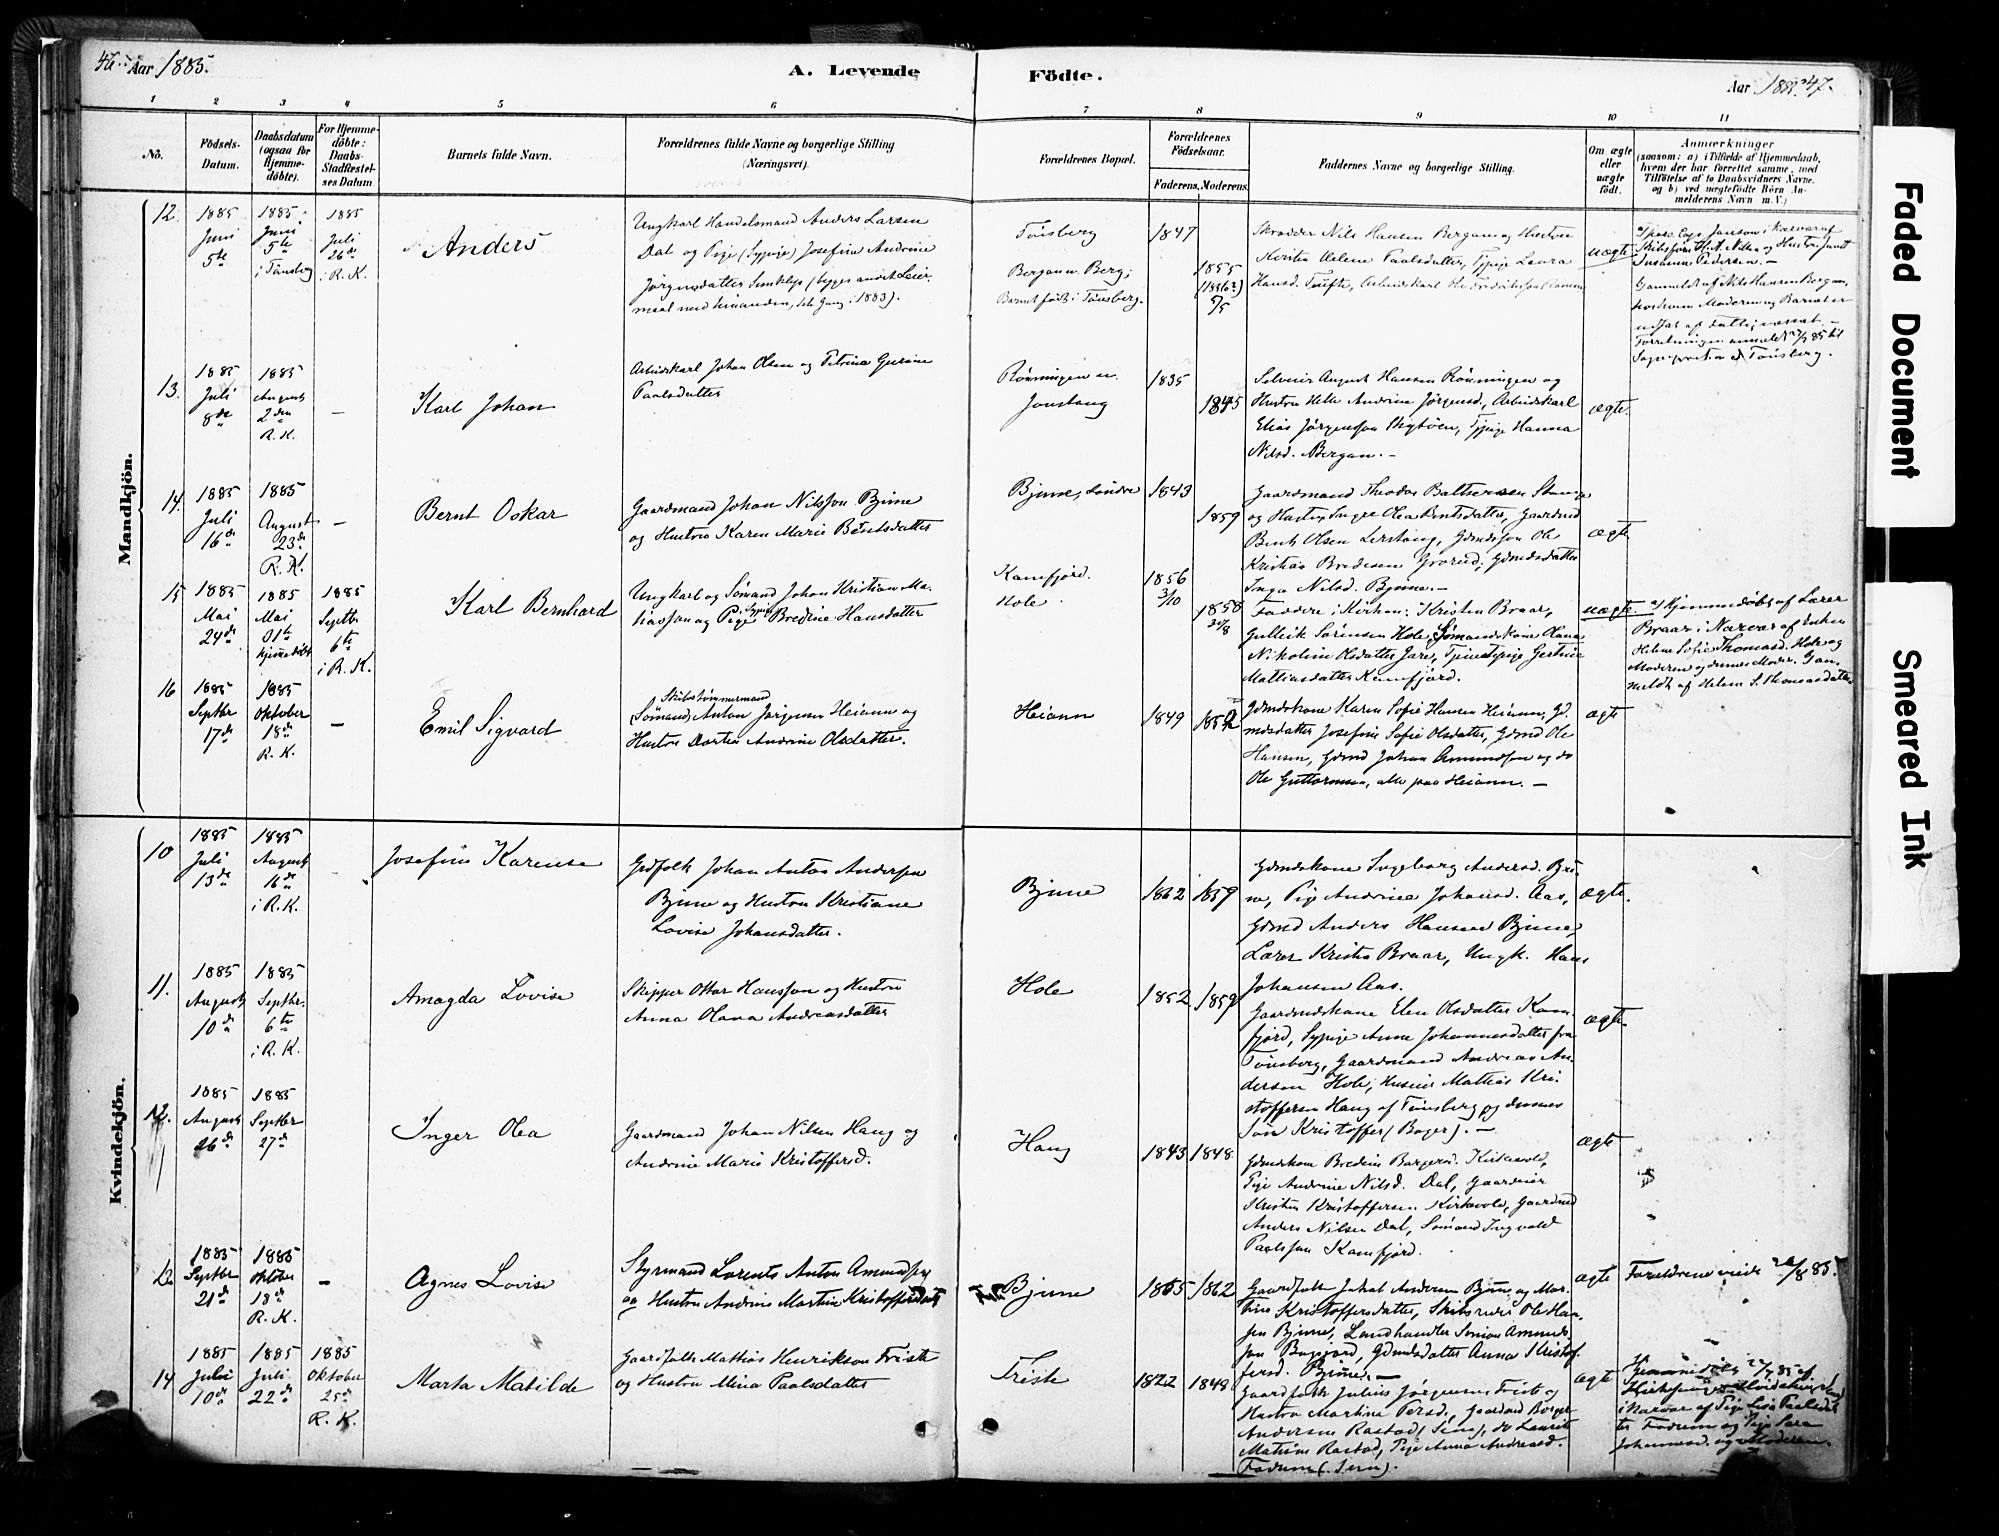 46. Aar 1885.
A. Levende Födte.
Aar 1885. 47.
1 2 3 4 5 6 7 8 9 10 11
No.
Födsels-Datum.
Daabsdatum (ogsaa for Hjemme-döbte).
For Hjemme-döbte: Daabs-Stadfæstel-ses Datum
Barnets fulde Navn.
Forældrenes fulde Navne og borgerlige Stilling (Næringsvei).
Forældrenes Bopæl.
Forældrenes Födselsaar.
Faderens. Moderens.
Faddernes Navne og borgerlige Stilling.
Om ægte eller uægte födt.
Anmærkninger
(saasom: a) i Tilfælde af Hjemmedaab, hvem der har forrettet samme, med Tilföielse af to Daabsvidners Navne, og b) ved uægtefödte Börn An-melderens Navn m. V.)
Mandkjön.
12. 1885 Juni 5te
1885 Juni 5te i Tönsberg
1885 Juli 26de i R. K.
Anders
Ungkarl Handelsmand Anders Larsen
Dal og Pige (Sypige) Josefine Andrine
Jörgensdatter
Tönsberg
Bergan n. Berg;
Barnet födt i Tönsberg.
1847
1855
(1856?)
7/5
Skrædder Nils Hansen Bergan og Hustru
Kirstin Helene Paalsdatter, Tjpige Laura
uægte
13. 1885 Juli 8de
1885 August 2den R. K.
–
Karl Johan
Arbeidskarl Johan Olsen og Petrina Gurine
Paalsdatter
Rönningen u.
Jonstang
1835
1845
Selveier August Hansen Rönningen og
Hustru Helle Andrine Jörgensd., Arbeidskarl
Elias Jörgensen, Tjpige Hanna
Nilsd. Bergan. –
ægte.
14. 1885 Juli 16de
1885 August 23de R. K.
–
Bernt Oskar
Gaardmand Johan Nilsson Bjune
og Hustru Karen Marie Berntsdatter
Bjune, Söndre
1843
1859
Gaardmand Theodor Baltsersen Stange
og Hustru Inger Olea Berntsdatter, Gaardmd
Bernt Olsen Lerstang, Gdmdssön Ole
Kristian Bredesen, Gdmdsdatter
Inga Nilsd. Bjune. –
ægte
15 1885 Mai 24de
1885 Mai 31te hjemmedöbt
1885 Septbr 6te i R. K.
Karl Bernhard
Ungkarl og Sömand Johan Kristian Ma-
thiassen og Pige Sypige Bredine Hansdatter
Kamfjord.
Hole.
1856 3/10
1858
Faddere i Kirken: Kristen Braar,
Gullik Sörensen Hole, Sömandskone Olava
Nikoline Olsdatter Jare, Tjenestepige Gertine
Mathiasdatter Kamfjord.
uægte.
a) Hjemmedöbt af Lærer
Braar i Nærvær af Enken
Helene Sofie Thomasd. Hole og
Moderen og dennes Moder.
meldt af Helene S. Thomasdatter
16 1885 Septbr 17de
1885 Oktober 18de R. K.
–
Emil Sigvard
Skibstömmermand
Sömand Anton Jörgensen Heiann og
Hustru Dortea Andrine Olsdatter.
Heiann
1849
Gdmdskone Karen Sofie Hansen Heiann, Gd-
mdsdatter Josefine Sofie Olsdatter, Gdmd Ole
Hansen, Gdmd Johan Amundsen og do
Ole Guttormsen, alle paa Heiann. –
ægte
Kvindekjön.
10 1885 Juli 13de
1885 August 16de i R. K.
Josefine Karense
Gdfolk Johan Anton Andersen
Bjune og Hustru Kristiane
Lovise Johansdatter.
Bjune
1862 1859
Gdmdskone Ingeborg Andersd. Bju-
ne, Pige Andrinea Johansd. Aas,
Gdmd Anders Hansen Bjune,
Lærer Kristen Braar, Ungk. Hans
Johansen Aas.
ægte.
11. 1885 August 10de
1885 Septbr. 6te i R. K.
Amagda Lovise
Skipper Ottar Hansson og Hustru
Anna Olava Andreasdatter
Hole
1852 1859
Gaardmdskone Elen Olsdatter Kam-
fjord, Sypige Anne Johannesdatter fra
Tönsberg, Gaardmand Andreas An-
dersen Hole, Huseier Mathias Kri-
stoffersen Haug af Tönsberg og dennes
Sön Kristoffer (Bager). –
ægte.
12. 1885 August 26de
1885 Septbr 27de
Inger Olea
Gaardmand Johan Nilsen Haug og
Andrine Marie Kristoffersd.
Haug
1843 1848
Gdmdskone Bredine Borgersd. Kirkevold,
Pige Andrine Nilsd. Dal, Gaardeier
Kristen Kristoffersen Kirkevold, Gaardmd
Anders Nilsen Dal, Sömand Ingvald
Paalsson Kamfjord.
ægte
13 1885 Septbr 21de
1885 Oktober 18de R. K.
–
Agnes Lovise
Styrmand Lorents Anton Amundsen
og Hustru Andrine Martine Kristoffersdatter
Bjune
1855 1862
Gaardfolk Jakob Andersen Bjune og Mar-
tine Kristoffersdatter, Skibsreder Ole Han-
sen Bjune, Landhandler Simon Amund-
sen, Gdmdsdatter Anna Kristof-
fersd. Bjune. –
ægte
Forældrene viede /8 85.
14 1885 Juli 10de
1885 Juli 22de
1885 Oktober 25de R. K.
Marta Matilde
Gaardfolk Mathias Henriksen Friste
og Hustru Mina Paalsdatter
Friste
1822 1848
Gaardfolk Julius Jörgensen Friste og
Hustru Martine Persd., Gaardmd Borger
Andersen Rastad (Sem), do Laurits
Mathisen Rastad, Pige Anna Andreasd.
Fadum (Sem).
ægte
Hjemmedöbt 22/7 85 af
i Nærvær af Pige Lisa Paalsdat-
ter Fadum og Pige Sara
Johannesd. og Moderen.
Faded Document
Smeared Ink